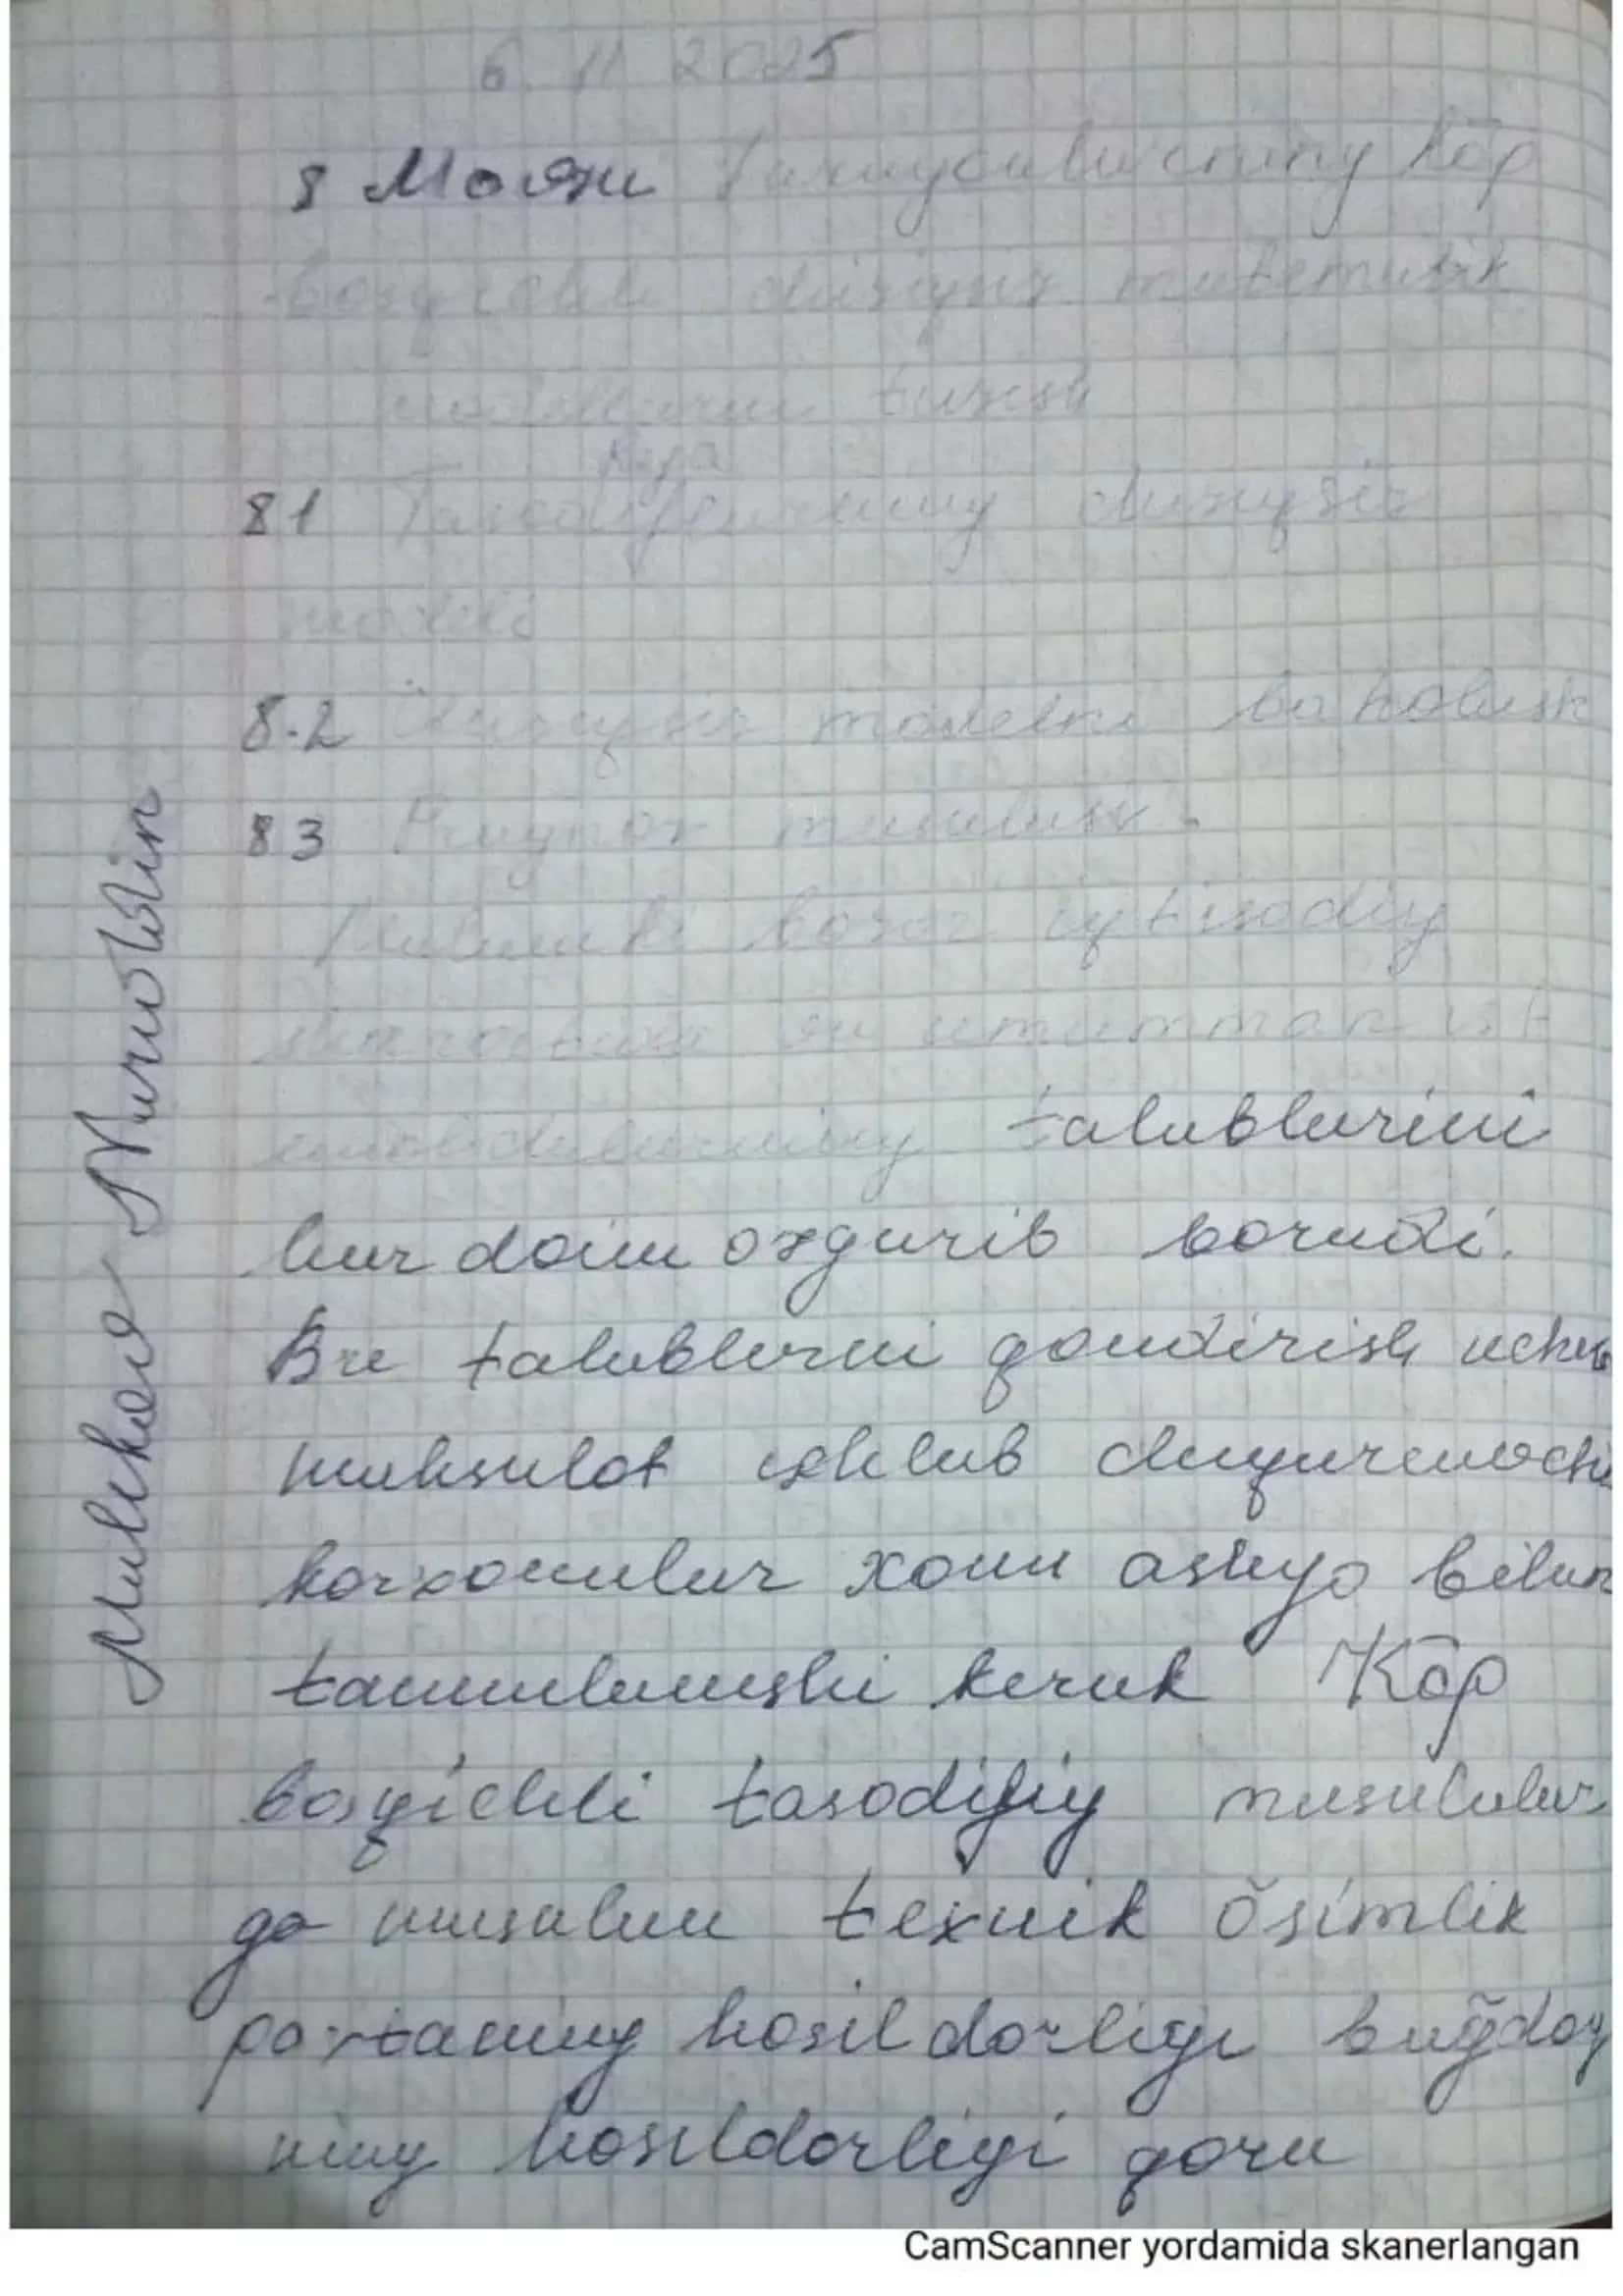 6 11 2025
8 Mavzu Jarayonlarning kõp
bosqichli chiziqsiz matematik
modellarini tuzish
Reja
81 Tasodifiy chiziqsiz
modeli
8.2 Chiziqsiz modelni baholash
83
bozor iqtisodiy
sharoitida va umumman ist
talablarini
har doim ozgarib boradi.
Bu talablarni qondirish uchun
mahsulot ishlab chiqaruvchi
korxonalar xom ashyo bilan
taminlanishi kerak Kõp
bosqichli tasodifiy masalalar
ga masalan texnik õsimlik
paxtaning hosildorligi buğdoy
ning hosildorligi qora
Malikov Nuriddin
CamScanner yordamida skanerlangan